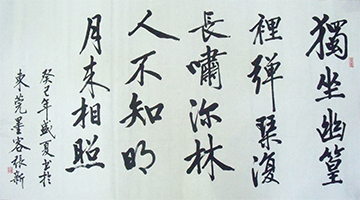 獨坐幽篁
裡彈琴復
長嘯深林
人不知明
月来相照
癸巳年盛夏书於
東莞墨客张新